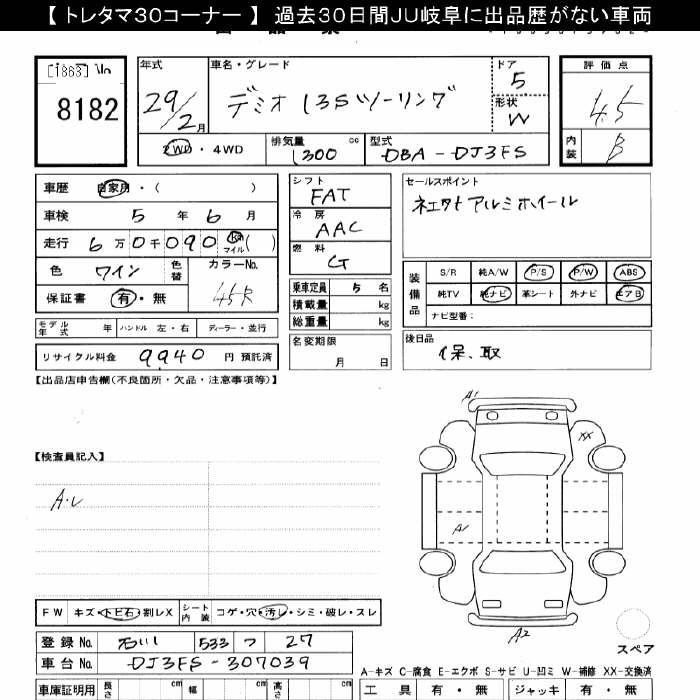 【 トレタマ30コーナー 】 過去30日間JU岐阜に出品歴がない車両
8182
年式
29/2月
車名・グレード
デミオ 13Sツーリング
ドア
5
形状
W
評価点
4.5
内装
B
2WD・4WD
排気量
1300 cc
型式
DBA-DJ3FS
車歴 自家用・( )
車検 5年6月
走行 6万0千090 km マイル ( )
色 ワイン 色替
カラーNo.
45R
保証書 有・無
モデル年式 年 ハンドル 左・右 ディーラー・並行
リサイクル料金 9940 円 預託済
シフト
FAT
冷房
AAC
燃料
G
乗車定員 5 名
積載量 kg
総重量 kg
名変期限
月 日
セールスポイント
装備品
S/R 純A/W P/S P/W ABS
純TV 純ナビ 革シート 外ナビ エアB
ナビ型番:
後日品
保、取
【出品店申告欄(不良箇所・欠品・注意事項等)】
【検査員記入】
A・U
A1
XX
A1
A2
スペア
FW キズ・トビ石・割レX シート内装 コゲ・穴・汚レ・シミ・破レ・スレ
登録No. 533 つ 27
車台No. DJ3FS-307039
A-キズ C-腐食 E-エクボ S-サビ U-凹ミ W-補修 XX-交換済
車庫証明用 長さ cm 幅 cm 高さ cm
工具 有・無 ジャッキ 有・無